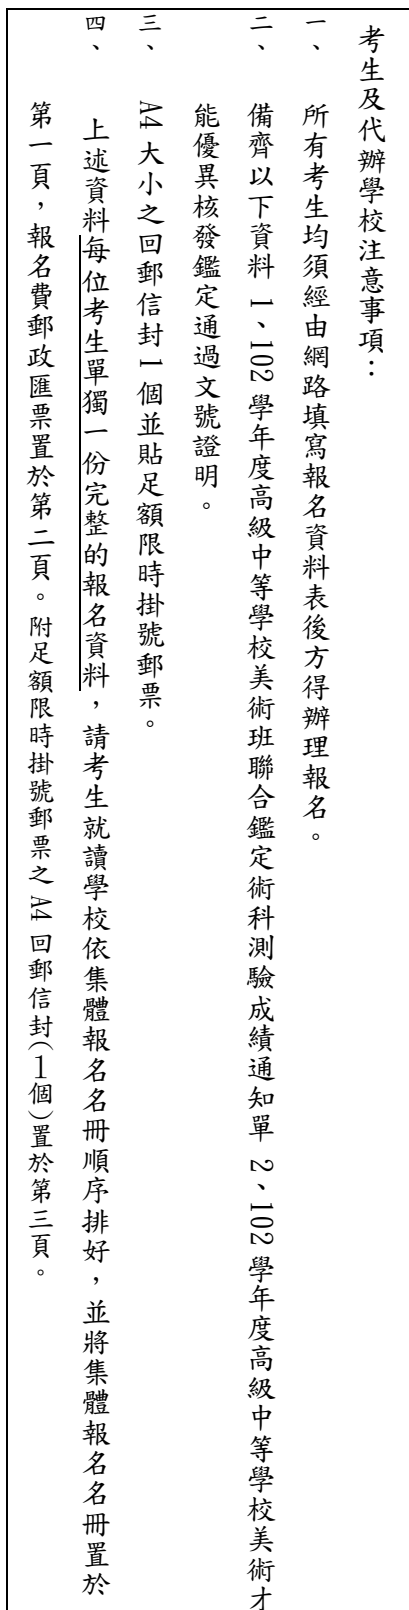 考生及代辦學校注意事項：
一、 所有考生均須經由網路填寫報名資料表後方得辦理報名。
二、 備齊以下資料 1、102 學年度高級中等學校美術班聯合鑑定術科測驗成績通知單 2、102 學年度高級中等學校美術才
能優異核發鑑定通過文號證明。
三、 A4 大小之回郵信封 1 個並貼足額限時掛號郵票。
四、 上述資料每位考生單獨一份完整的報名資料，請考生就讀學校依集體報名名冊順序排好，並將集體報名名冊置於
第一頁，報名費郵政匯票置於第二頁。附足額限時掛號郵票之 A4 回郵信封(1個)置於第三頁。